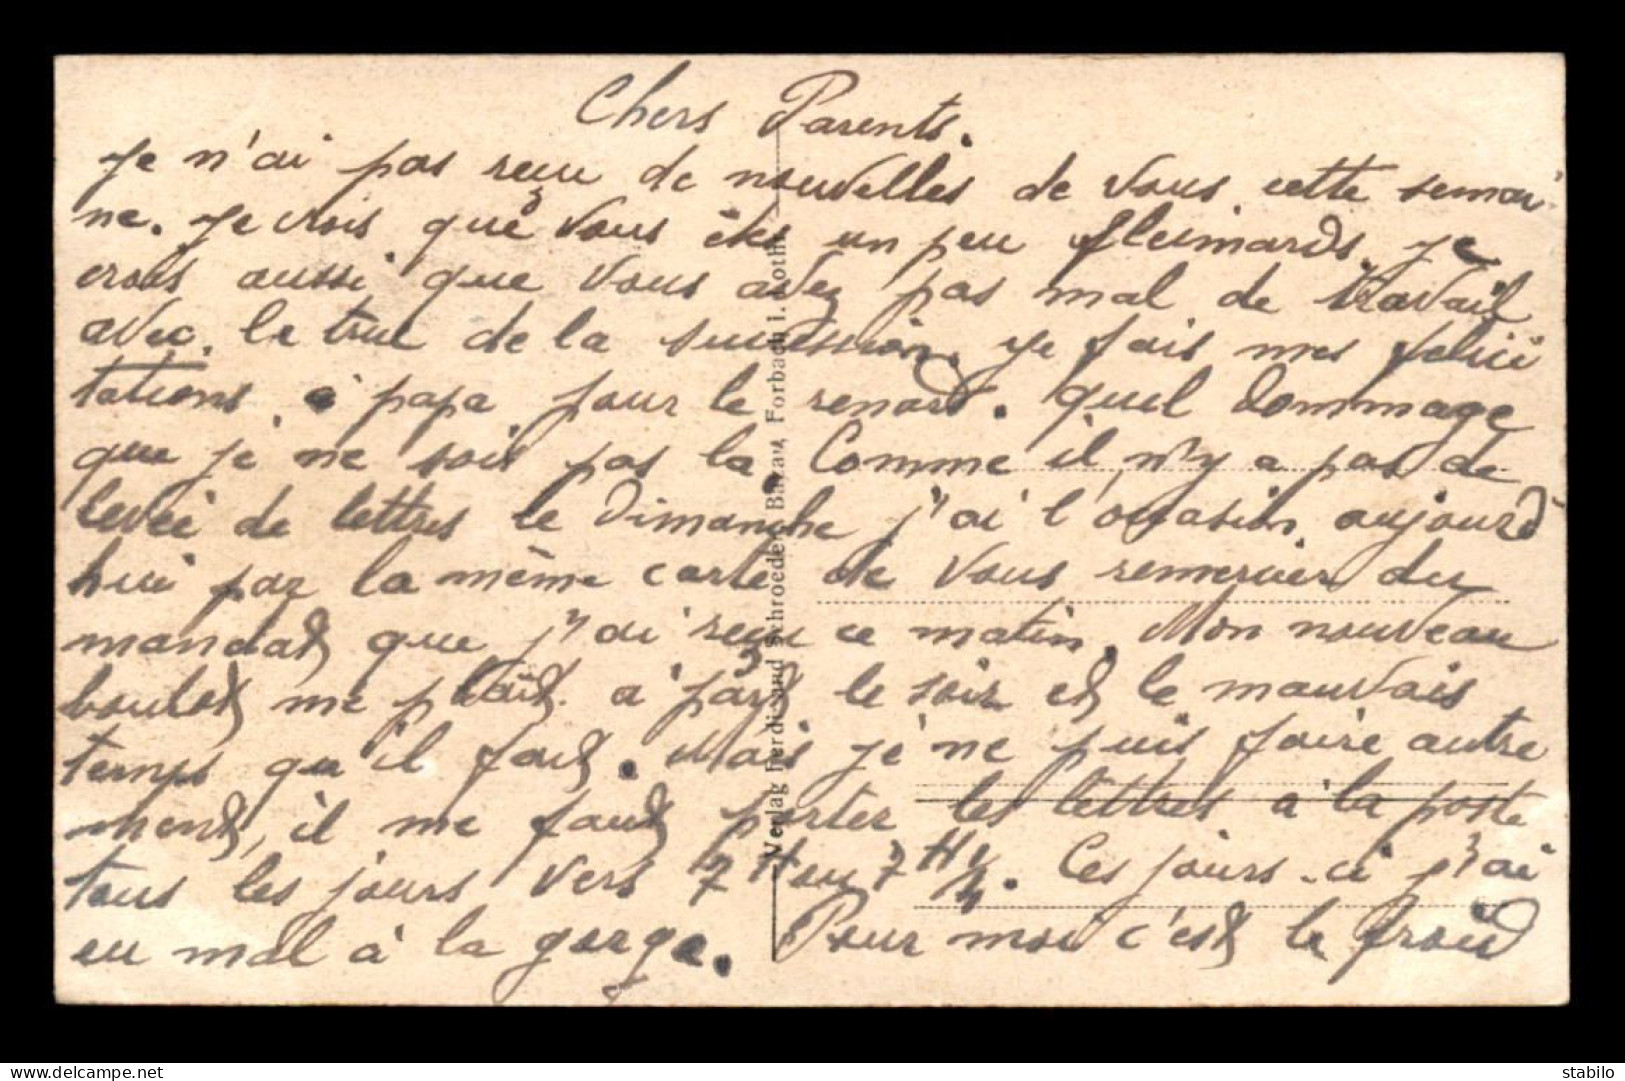 Chers Parents.
Je n'ai pas reçu de nouvelles de vous cette semai
ne. Je crois que vous êtes un peu fleimards. Je
crois aussi que vous avez pas mal de travail
avec le truc de la succession. Je fais mes félici
tations à papa pour le renard. Quel dommage
que je ne sois pas la. Comme il n'y a pas de
levée de lettres le Dimanche j'ai l'occasion aujourd
hui par la même carte de vous remercier du
mandat que j'ai reçu ce matin. Mon nouveau
boulot me plaît à part le soir et le mauvais
temps qu'il fait. Mais je ne puis faire autre
ment, il me faut porter les lettres à la poste
tous les jours vers 7 H ou 7 H 1/4. Ces jours-ci j'ai
eu mal à la gorge. Pour moi c'est le froid
Verlag Ferdinand Schroeder, Bazar, Forbach i. Lothr.
www.delcampe.net
stabilo